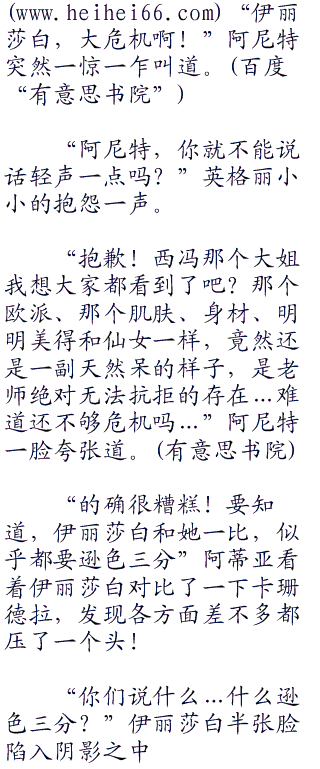 (www.heihei66.com) “伊丽
莎白，大危机啊！”阿尼特
突然一惊一乍叫道。(百度
“有意思书院”)
“阿尼特，你就不能说
话轻声一点吗？”英格丽小
小的抱怨一声。
“抱歉！西冯那个大姐
我想大家都看到了吧？那个
欧派、那个肌肤、身材、明
明美得和仙女一样，竟然还
是一副天然呆的样子，是老
师绝对无法抗拒的存在…难
道还不够危机吗…”阿尼特
一脸夸张道。(有意思书院)
“的确很糟糕！要知
道，伊丽莎白和她一比，似
乎都要逊色三分”阿蒂亚看
着伊丽莎白对比了一下卡珊
德拉，发现各方面差不多都
压了一个头！
“你们说什么…什么逊
色三分？”伊丽莎白半张脸
陷入阴影之中